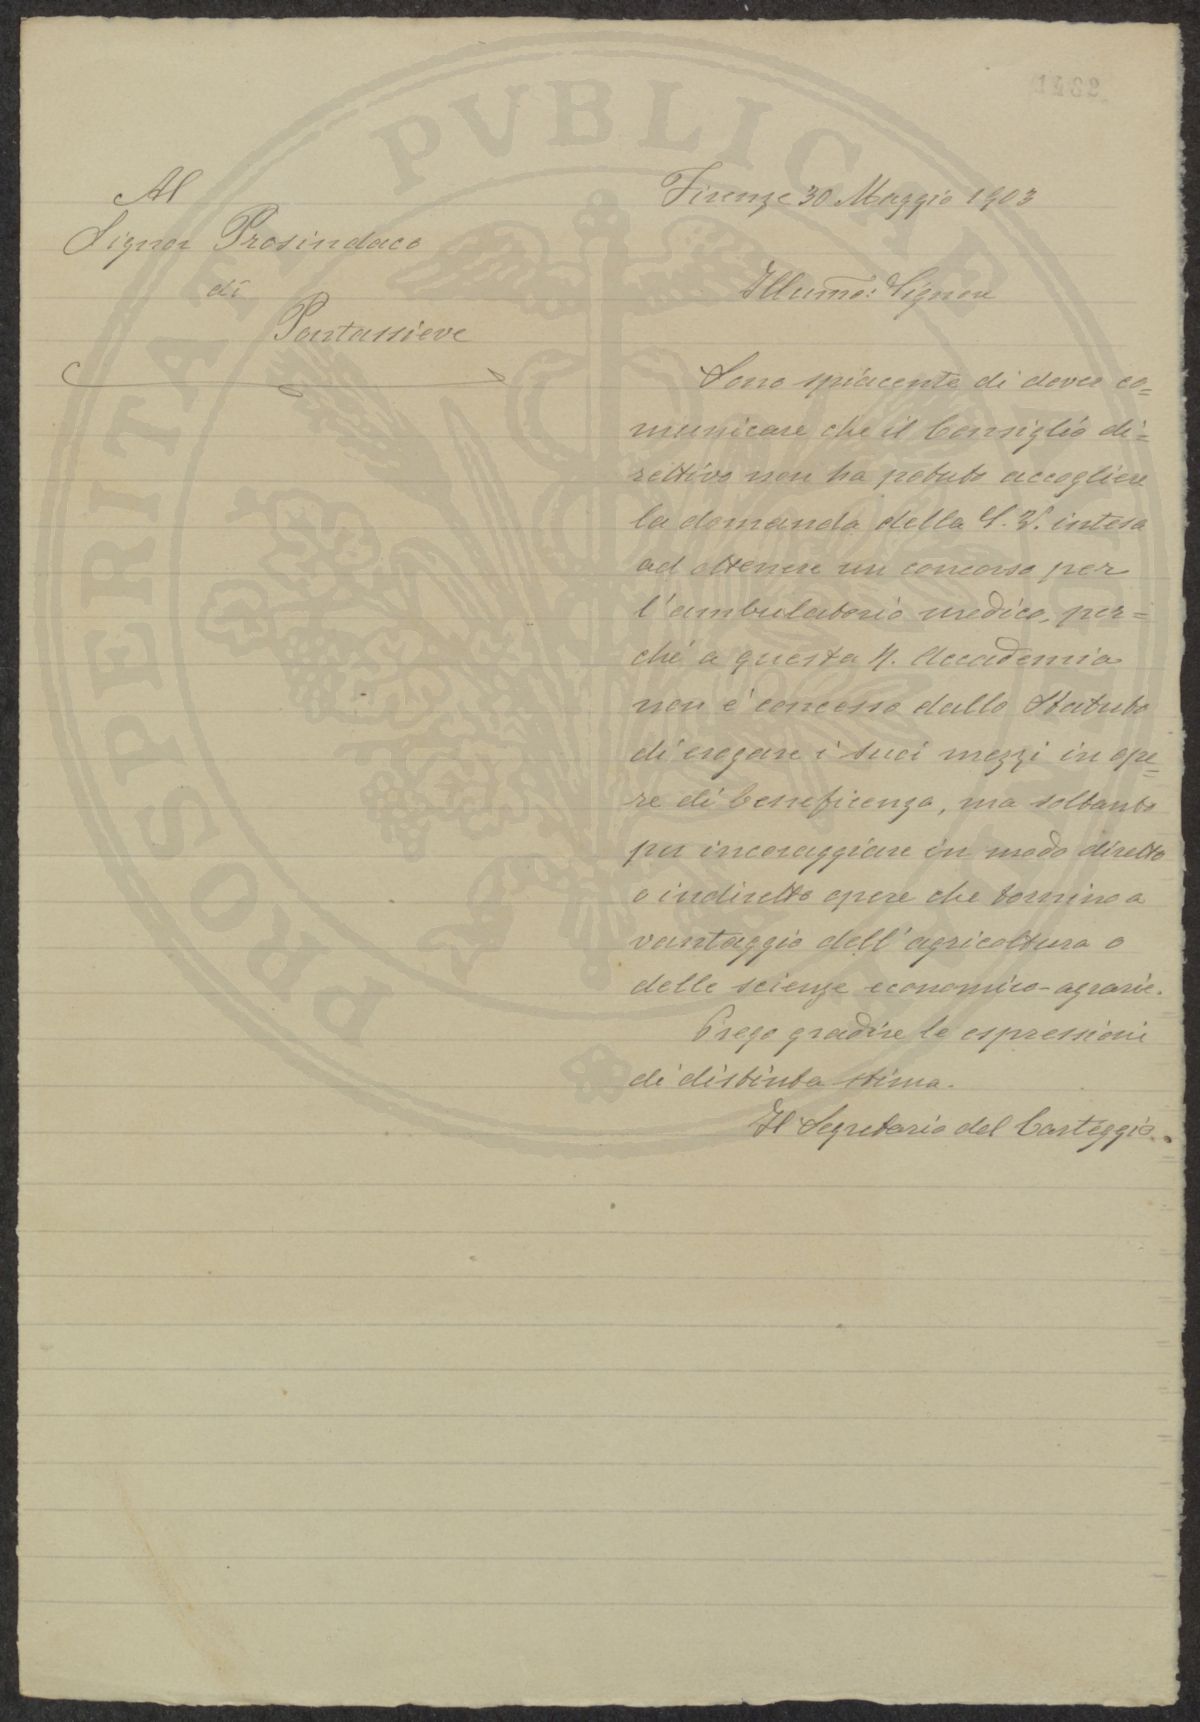 1482
Al
Signor Prosindaco
di
Pontassieve
Firenze 30 Maggio 1903
Illumo: Signore
Sono spiacente di dover co=
municare che il Consiglio di=
rettivo non ha potuto accogliere
la domanda della S. V. intesa
ad ottenere un concorso per
l'ambulatorio medico, per=
chè a questa R. Accademia
non è concesso dallo Statuto
di erogare i suoi mezzi in ope=
re di beneficenza, ma soltanto
per incoraggiare in modo diretto
o indiretto opere che tornino a
vantaggio dell'agricoltura o
delle scienze economico-agrarie.
Prego gradire le espressioni
di distinta stima.
Il Segretario del Carteggio.
PROSPERITATI PVBLICAE AVGENDAE